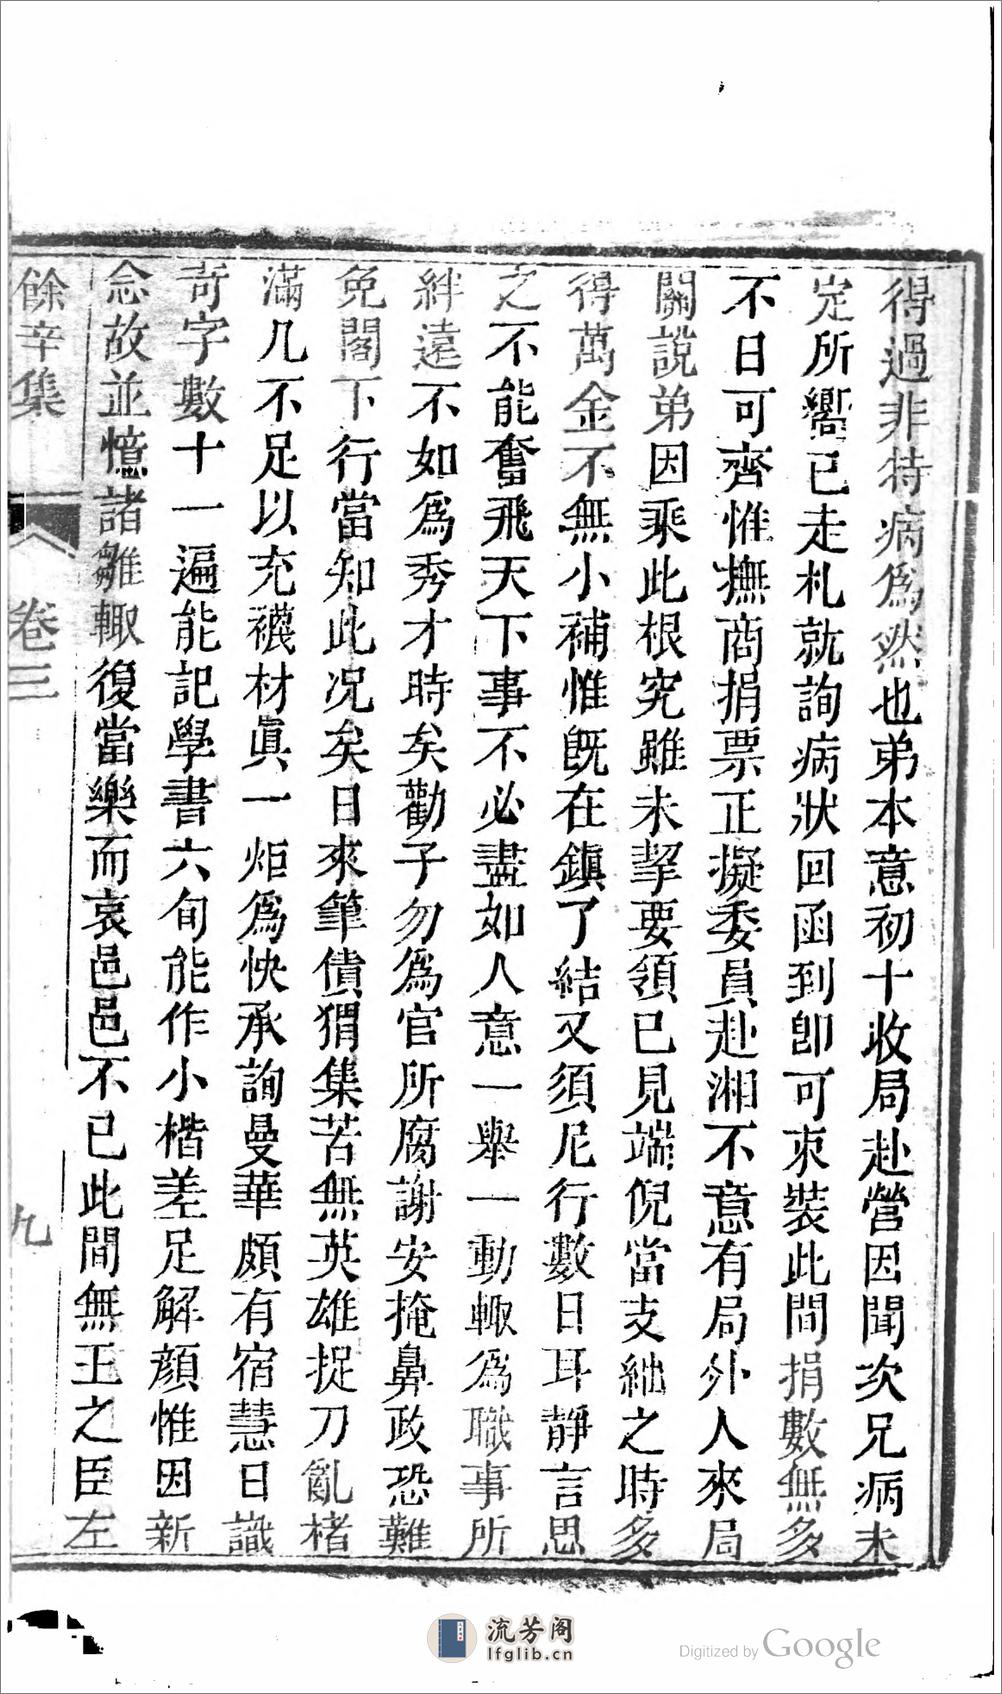 得過非特病爲然也弟本意初十收局赴營因聞次兄病未
定所嚮已走札就詢病狀回函到卽可束裝此間捐數無多
不日可齊惟撫商捐票正擬委員赴湘不意有局外人來局
關說弟因乘此根究雖未挈要領已見端倪當支絀之時多
得萬金不無小補惟旣在鎭了結又須尼行數日耳靜言思
之不能奮飛天下事不必盡如人意一舉一動輙爲職事所
絆遠不如爲秀才時矣勸子勿爲官所腐謝安掩鼻政恐難
免閣下行當知此况矣日來筆債猬集苦無英雄捉刀亂楮
滿几不足以充襪材眞一炬爲快承詢曼華頗有宿慧日識
奇字數十一遍能記學書六旬能作小楷差足解顏惟因新
念故並憶諸雛輙復當樂而哀邑邑不已此間無王之臣左
餘辛集
卷三
九
流芳阁
lfglib.cn
Digitized by Google